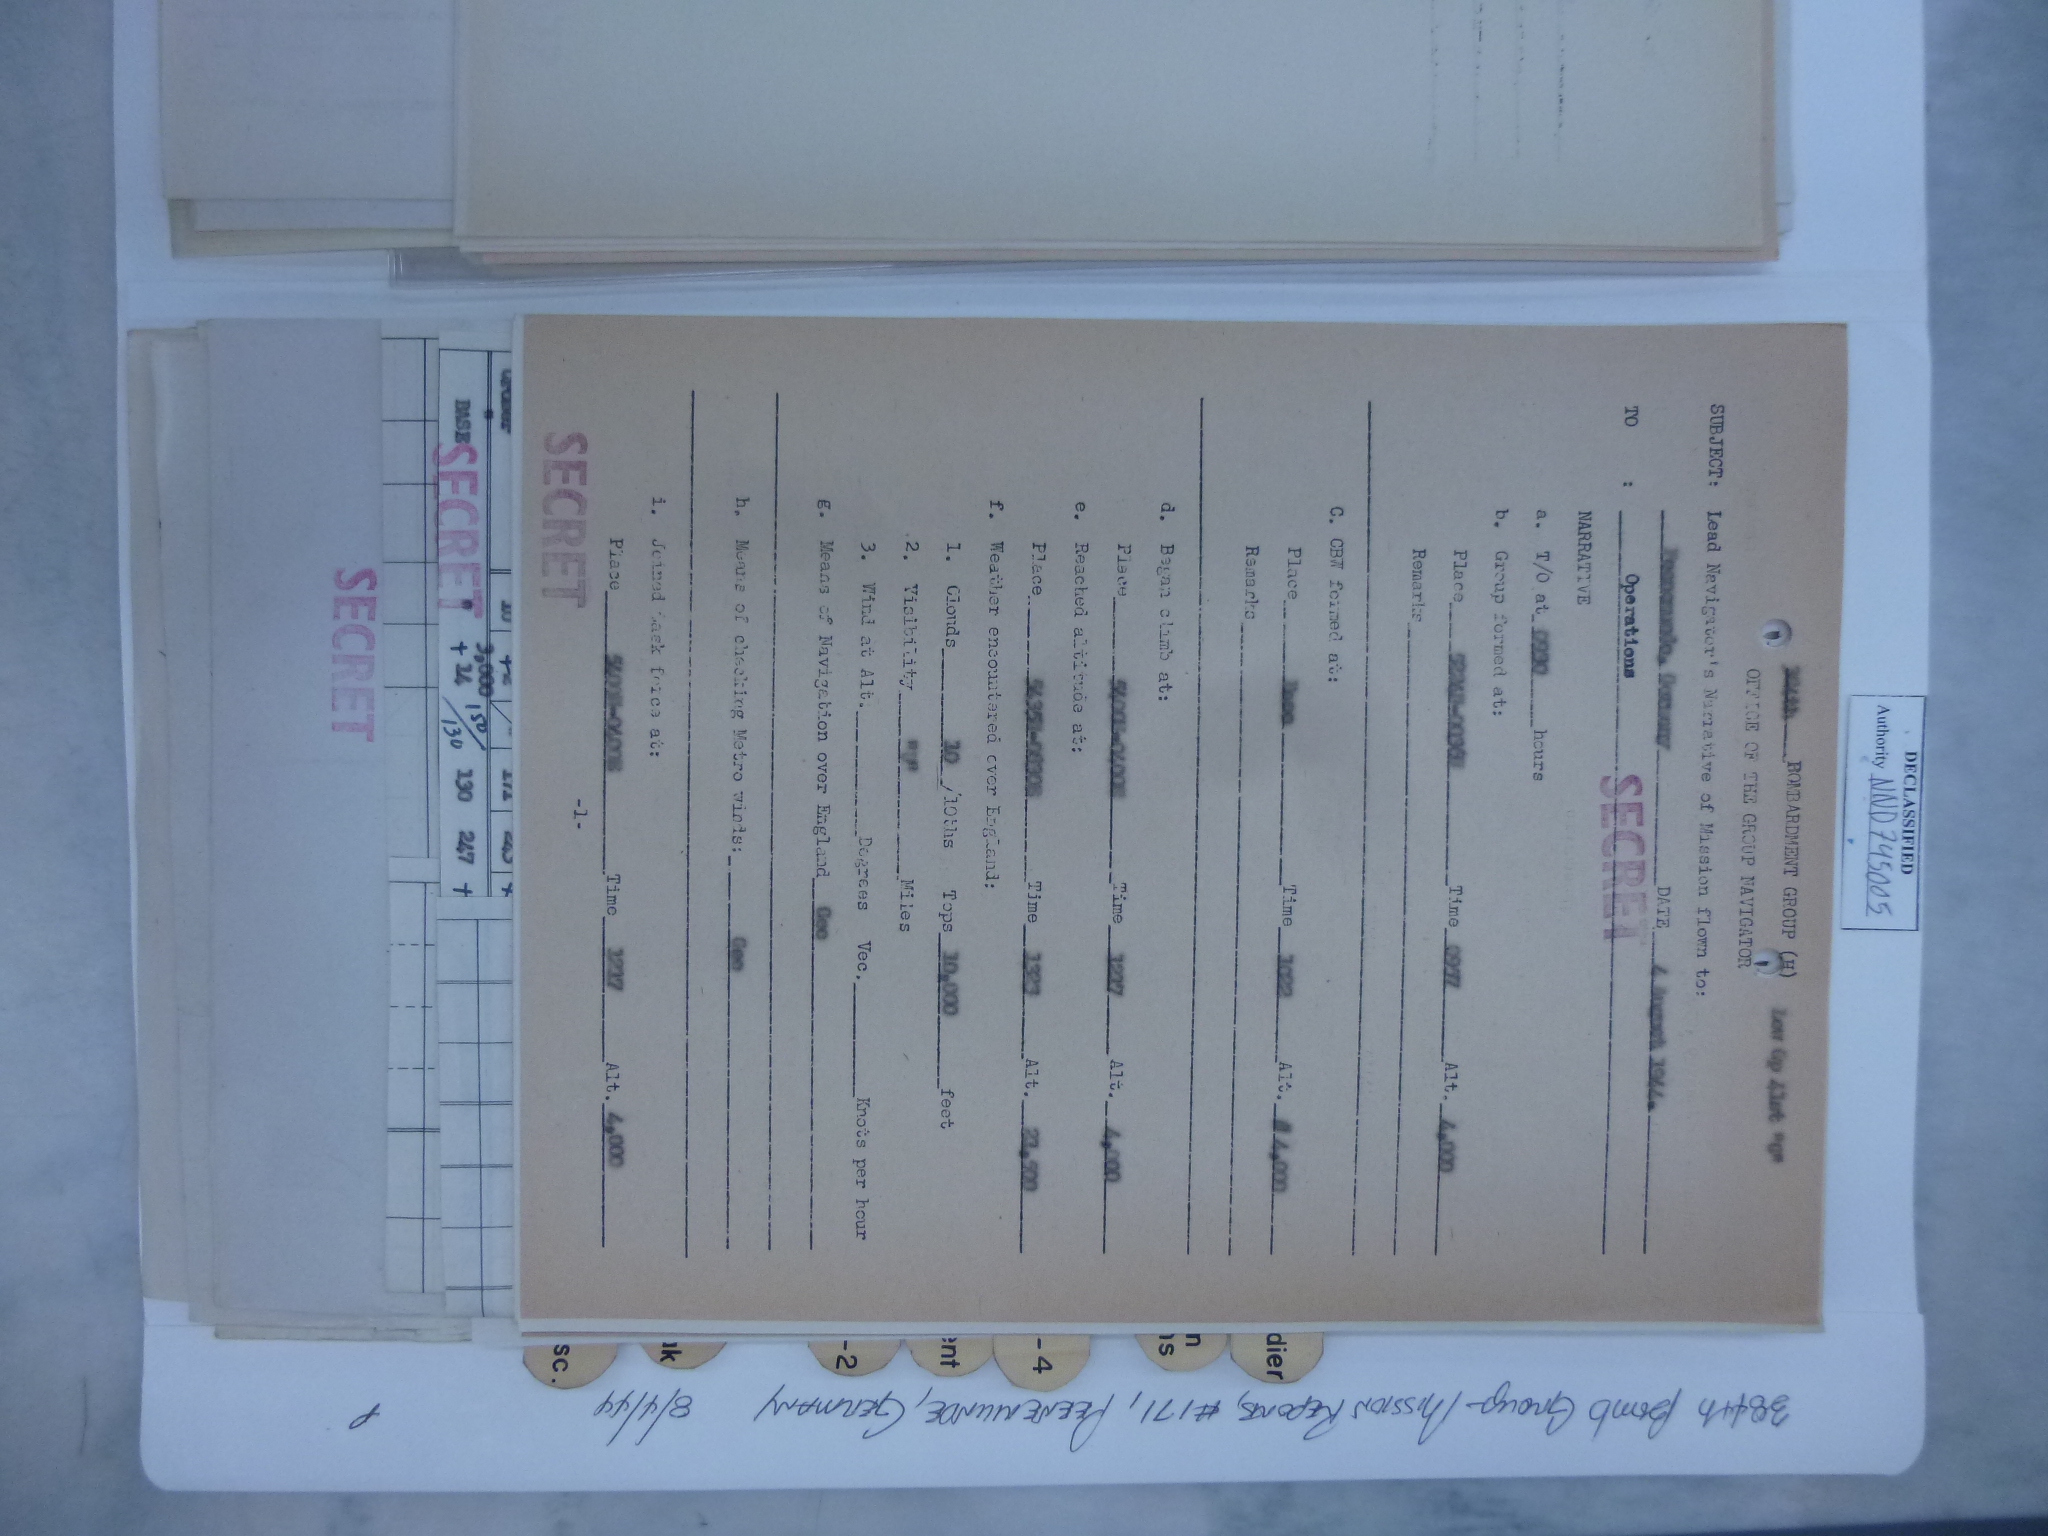 DECLASSIFIED
Authority NND 745005
384th BOMBARDMENT GROUP (H) Low Gp 41st "C"
OFFICE OF THE GROUP NAVIGATOR
SUBJECT: Lead Navigator's Narative of Mission flown to:
Peenemunde, Germany DATE 4 August 1944.
TO : Operations
SECRET
NARRATIVE
a. T/O at hours
b. Group formed at:
Place Time Alt. 4,000
Remarks
C. CBW formed at:
Place Time 1022 Alt. 4,000
Remarks
d. Began climb at:
Place Time 1217 Alt. 4,000
e. Reached altitude at:
Place Time 1323 Alt.
f. Weather encountered over England:
1. Clouds 10 /10ths Tops 10,000 feet
2. Visibility Miles
3. Wind at Alt. Degrees Vec. Knots per hour
g. Means of Navigation over England Gee
h. Means of checking Metro winds: Gee
i. Joined task force at:
Place Time 1217 Alt. 4,000
-1-
SECRET
BASE
SECRET
+24 150/130 130 247 +
SECRET
dier
n
ns
-4
ent
-2
ak
sc.
384th Bomb Group - Mission Reports, #171, PEENEMUNDE, GERMANY 8/4/44